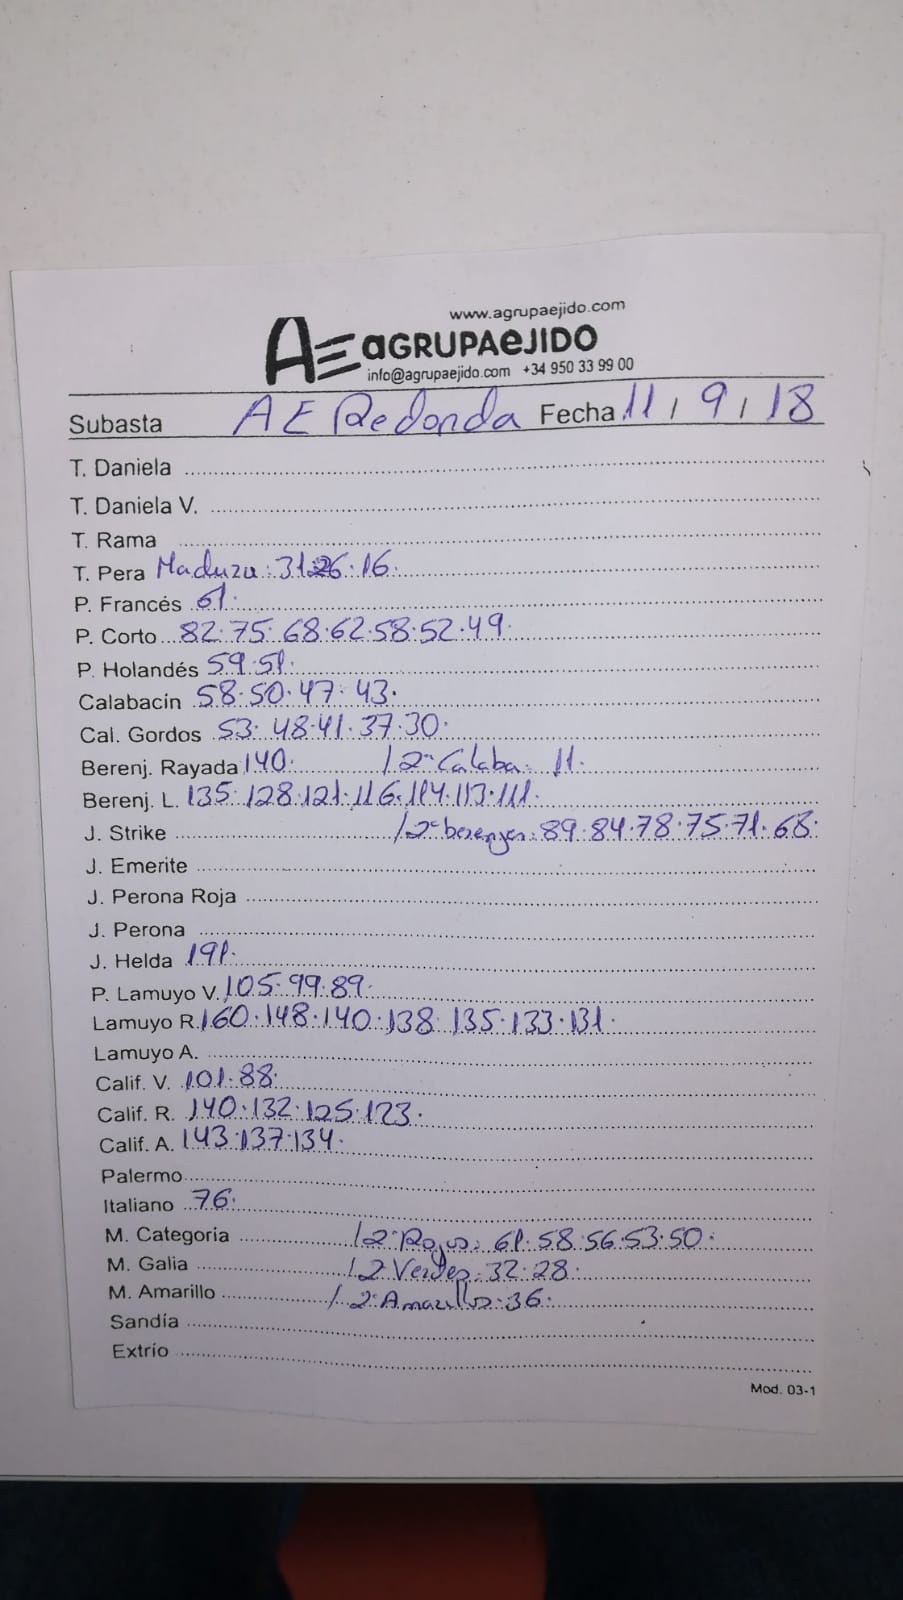 www.agrupaejido.com
AE aGRUPAeJIDO
info@agrupaejido.com +34 950 33 99 00
Subasta AE Redonda Fecha 11 / 9 / 18
T. Daniela
T. Daniela V.
T. Rama
T. Pera Maduza: 31.26.16.
P. Francés 61.
P. Corto 82.75.68.62.58.52.49.
P. Holandés 59.51.
Calabacín 58.50.47.43.
Cal. Gordos 53.48.41.37.30.
Berenj. Rayada 140. / 2ª Calaba: 11.
Berenj. L. 135.128.121.116.114.113.111.
J. Strike / 2ª berenjen: 89.84.78.75.71.68.
J. Emerite
J. Perona Roja
J. Perona
J. Helda 191.
P. Lamuyo V. 105.99.89.
Lamuyo R. 160.148.140.138.135.133.131.
Lamuyo A.
Calif. V. 101.88.
Calif. R. 140.132.125.123.
Calif. A. 143.137.134.
Palermo
Italiano 76.
M. Categoria / 2ª Rojos: 61.58.56.53.50.
M. Galia / 2 Verdes: 32.28.
M. Amarillo / 2ª Amarillos: 36.
Sandía
Extrío
Mod. 03-1